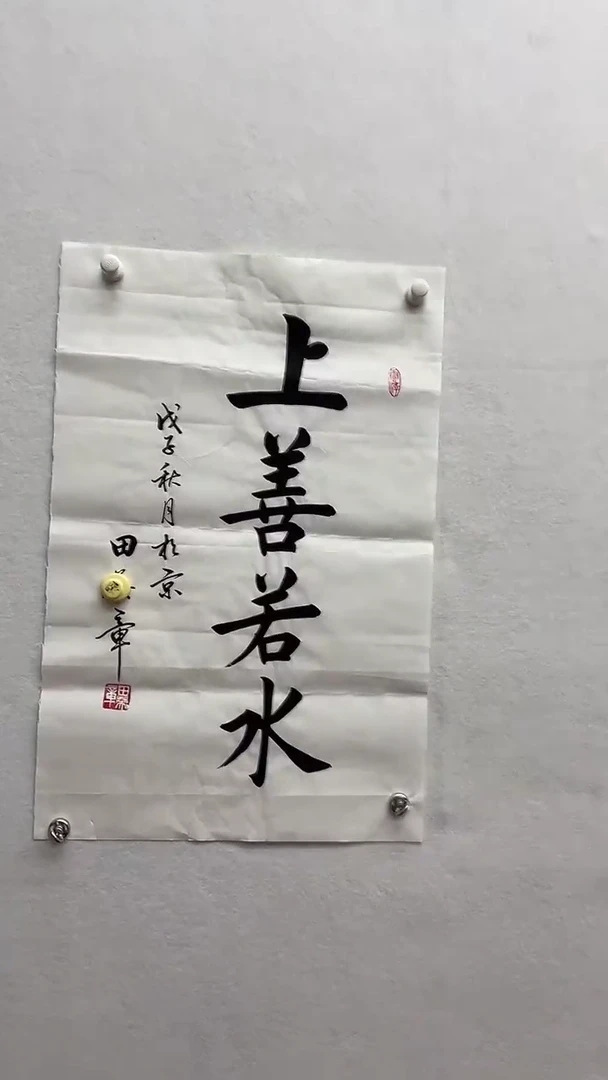 上善若水
戊子秋月於京
田 章